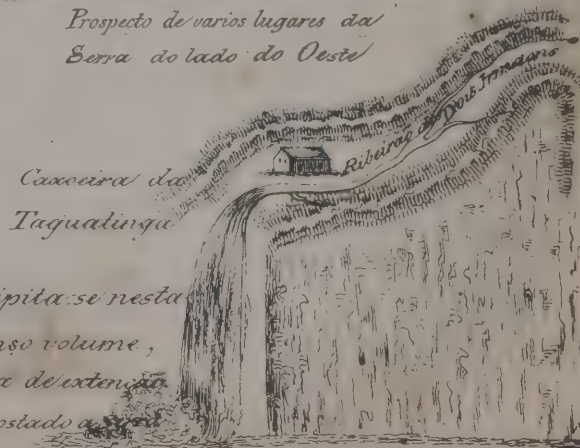 Prospecto de varios lugares da
Serra do lado do Oeste
Ribeirão dos Dois Irmaons
Caxoeira da
Taguatinga
ipita-se nesta
nso volume,
a de extenção
ostado a